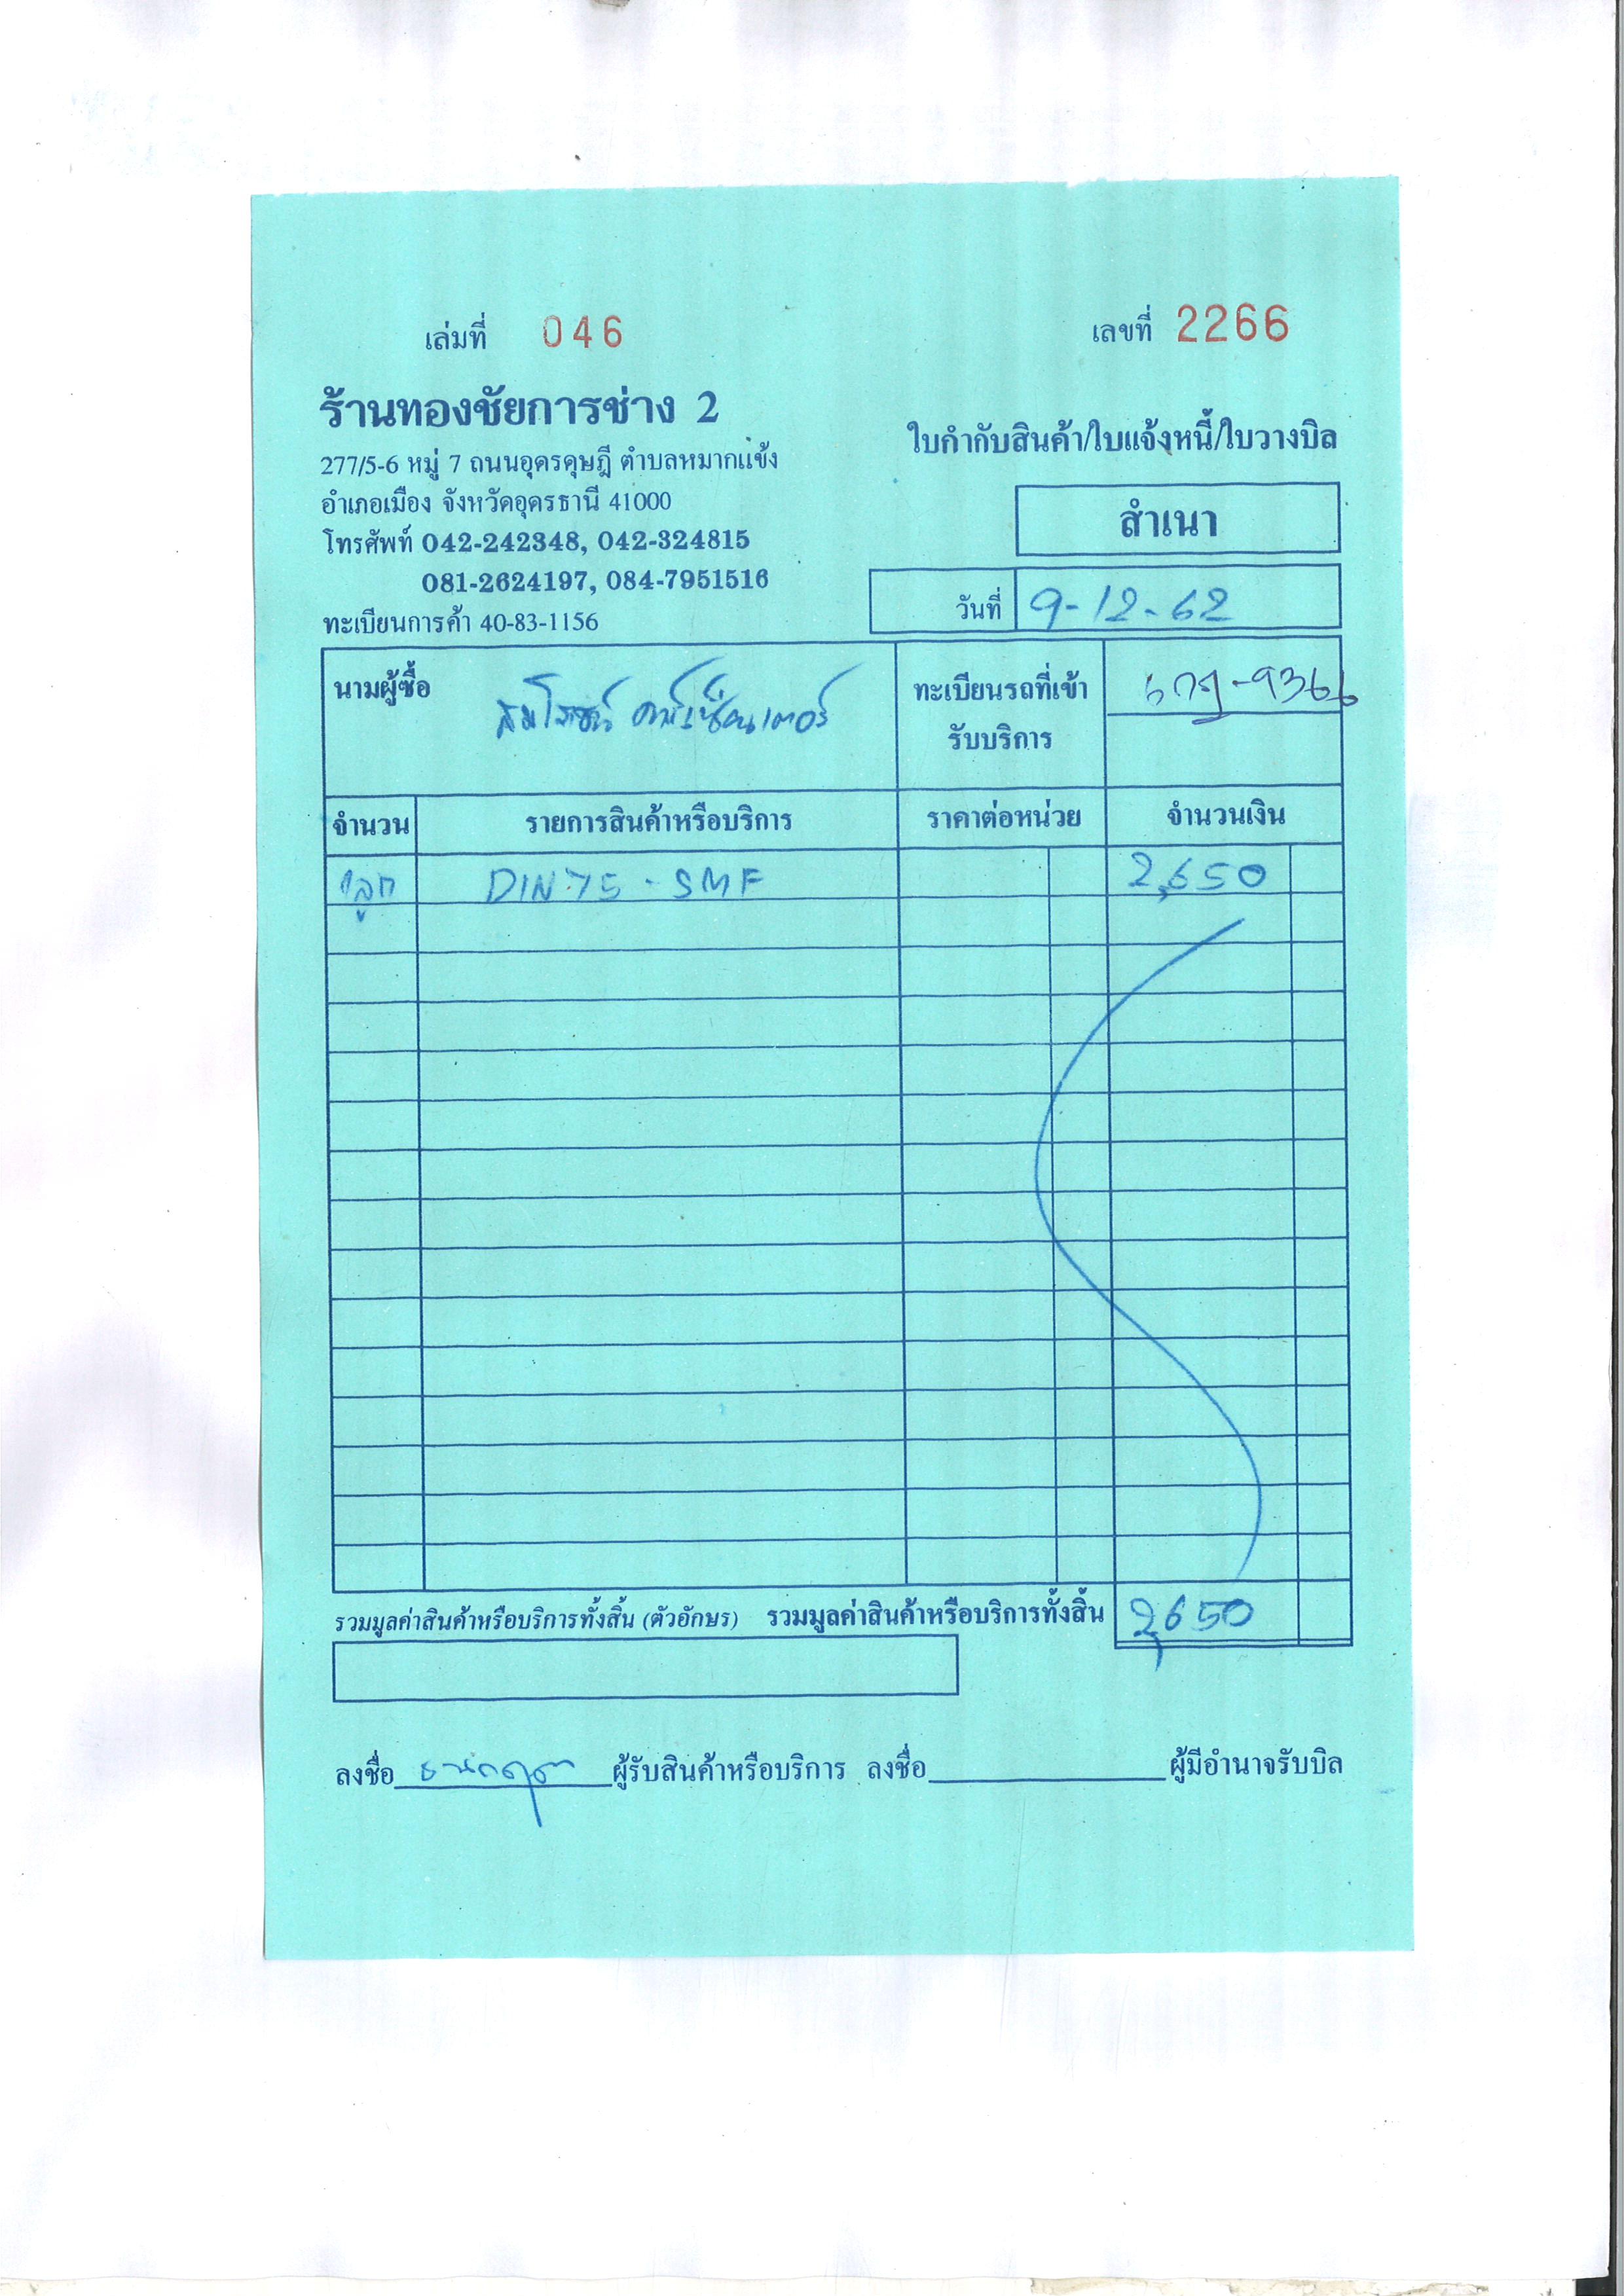 เล่มที่ 046
เลขที่ 2266
ร้านทองชัยการช่าง 2
277/5-6 หมู่ 7 ถนนอุดรดุษฎี ตำบลหมากแข้ง
อำเภอเมือง จังหวัดอุดรธานี 41000
โทรศัพท์ 042-242348, 042-324815
081-2624197, 084-7951516
ทะเบียนการค้า 40-83-1156
ใบกำกับสินค้า/ใบแจ้งหนี้/ใบวางบิล
สำเนา
วันที่ 9-12-62
นามผู้ซื้อ คาร์เซ็นเตอร์
ทะเบียนรถที่เข้า
รับบริการ
-9366
จำนวน รายการสินค้าหรือบริการ ราคาต่อหน่วย จำนวนเงิน
1ลูก DIN75-SMF 2,650
รวมมูลค่าสินค้าหรือบริการทั้งสิ้น (ตัวอักษร) รวมมูลค่าสินค้าหรือบริการทั้งสิ้น 2,650
ลงชื่อ ผู้รับสินค้าหรือบริการ ลงชื่อ ผู้มีอำนาจรับบิล